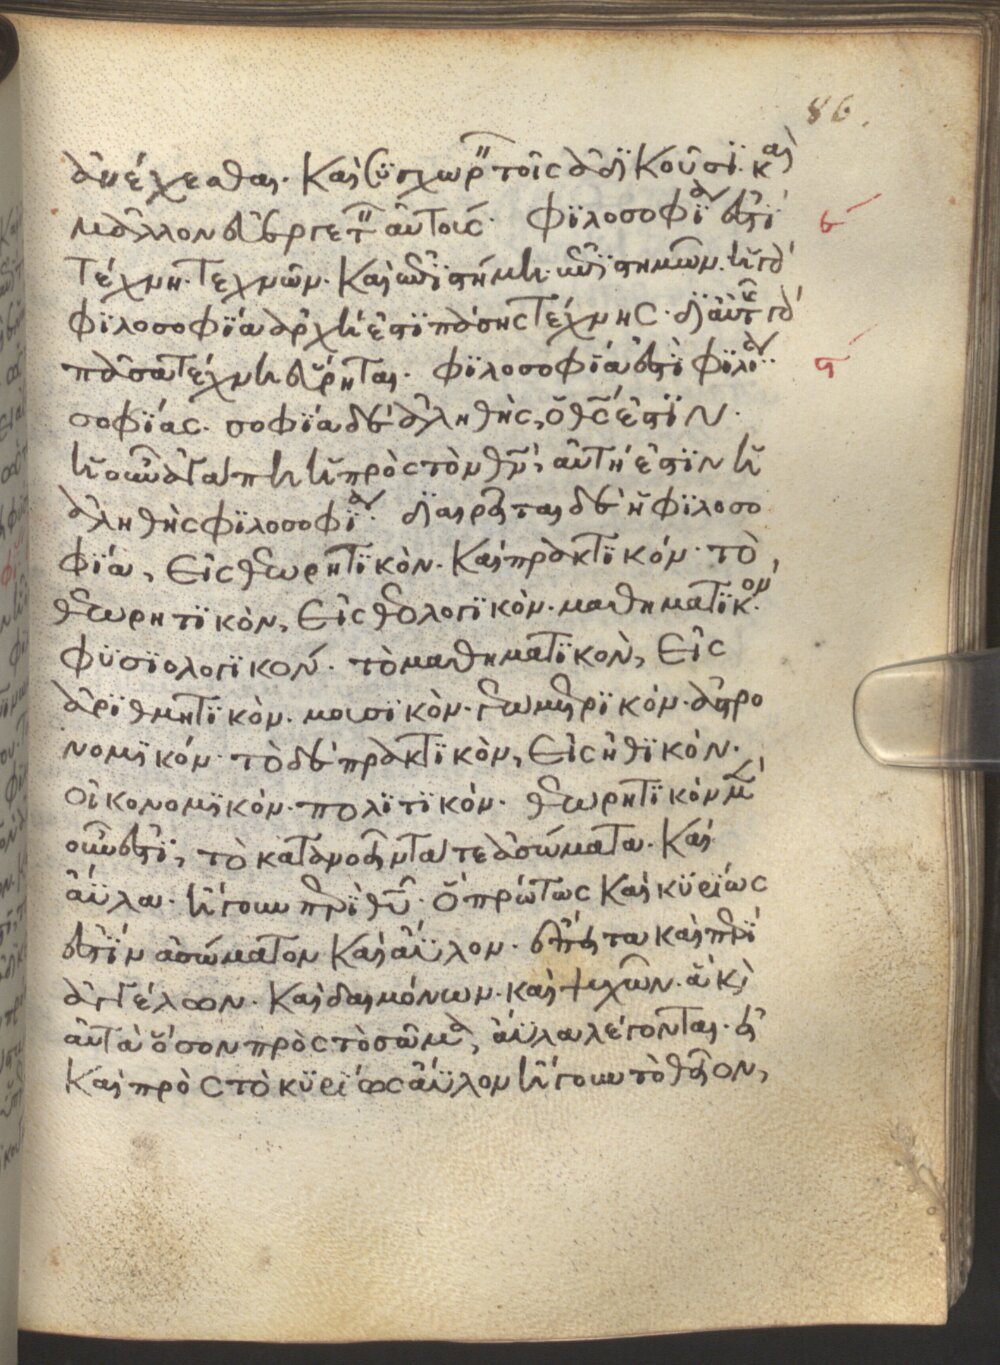 86.
ἀνέχεσθαι. Καὶ συγχωρεῖν τοῖς ἀδικοῦσι. καὶ
μᾶλλον εὐεργετεῖν αὐτούς. Φϊλοσοφΐα ἐστὶ ε
τέχνη τεχνῶν. Καὶ ἐπιστήμη ἐπιστημῶν. ἡ γὰρ
φϊλοσοφΐα ἀρχὴ ἐστὶ πάσης τέχνης. δι αὐτῆς γὰρ
πᾶσα τέχνη εὕρηται. Φϊλοσοφΐα ἐστὶ φϊλία ς
σοφΐας. σοφΐα δὲ ἀληθὴς, ὁ θεός ἐστϊν.
ἡ οὖν ἀγάπη ἡ πρὸς τὸν θεόν, αὕτη ἐστὶν ἡ
ἀληθὴς φϊλοσοφΐα. διαιρεῖται δὲ ἡ φϊλοσο
φΐα, Εἰς θεωρητϊκὸν. Καὶ πρακτϊκόν. τὸ
θεωρητϊκὸν, Εἰς θεολογϊκὸν. μαθηματϊκόν.
φϋσϊολογϊκόν. τὸ μαθηματϊκὸν, Εἰς
ἀρϊθμητϊκὸν. μουσϊκὸν. γεωμετρϊκόν. ἀστρο
νομϊκόν. τὸ δὲ πρακτϊκὸν, Εἰς ἠθϊκὸν.
οἰκονομϊκόν. πολϊτϊκόν. θεωρητϊκὸν μὲν
οὖν ἐστὶ, τὸ κατανοεῖν τὰ τε ἀσώματα. Καὶ
ἄϋλα. ἤγουν περὶ θεοῦ. ὃ πρώτως Καὶ κϋρίως
ἐστὶν ἀσώματον Καὶ ἄϋλον. ἔπειτα καὶ περὶ
ἀγγέλων. Καὶ δαιμόνων. καὶ ψυχῶν. ἃ καὶ
αὐτὰ ὅσον πρὸς τὸ σῶμα, ἄϋλα λέγονται. εἰ
Καὶ πρὸς τὸ κϋρίως ἄϋλον ἤγουν τὸ θεῖον,